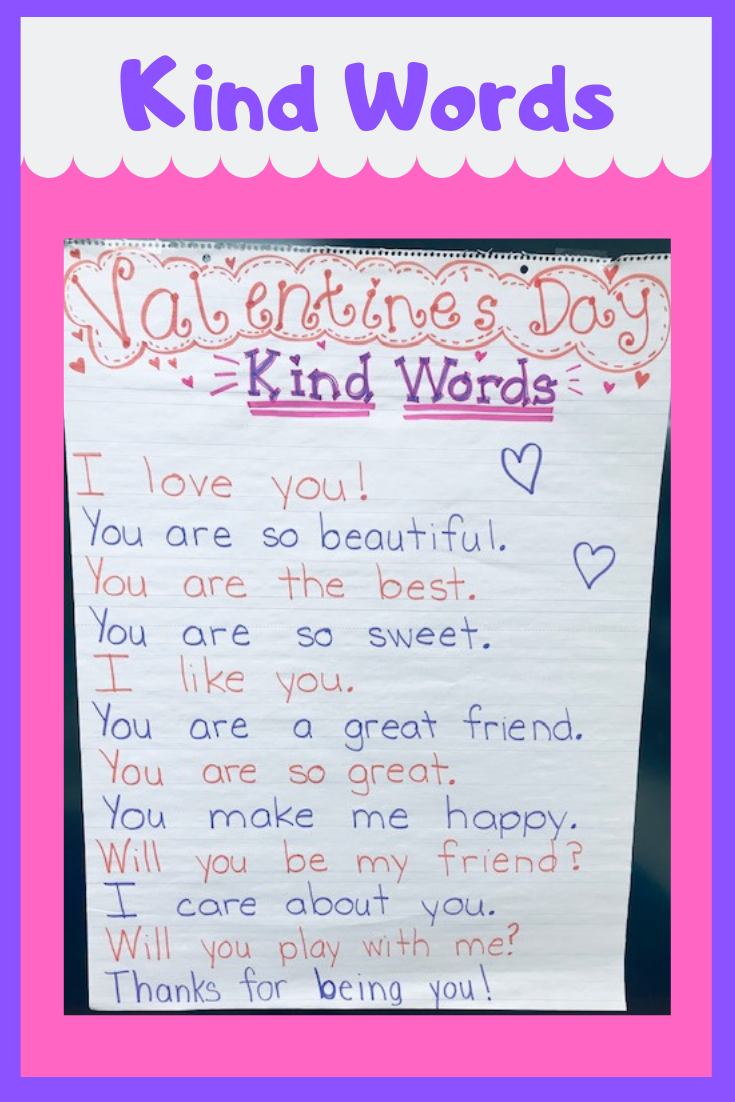 Kind Words
Valentine's Day
Kind Words
I love you!
You are so beautiful.
You are the best.
You are so sweet.
I like you.
You are a great friend.
You are so great.
You make me happy.
Will you be my friend?
I care about you.
Will you play with me?
Thanks for being you!